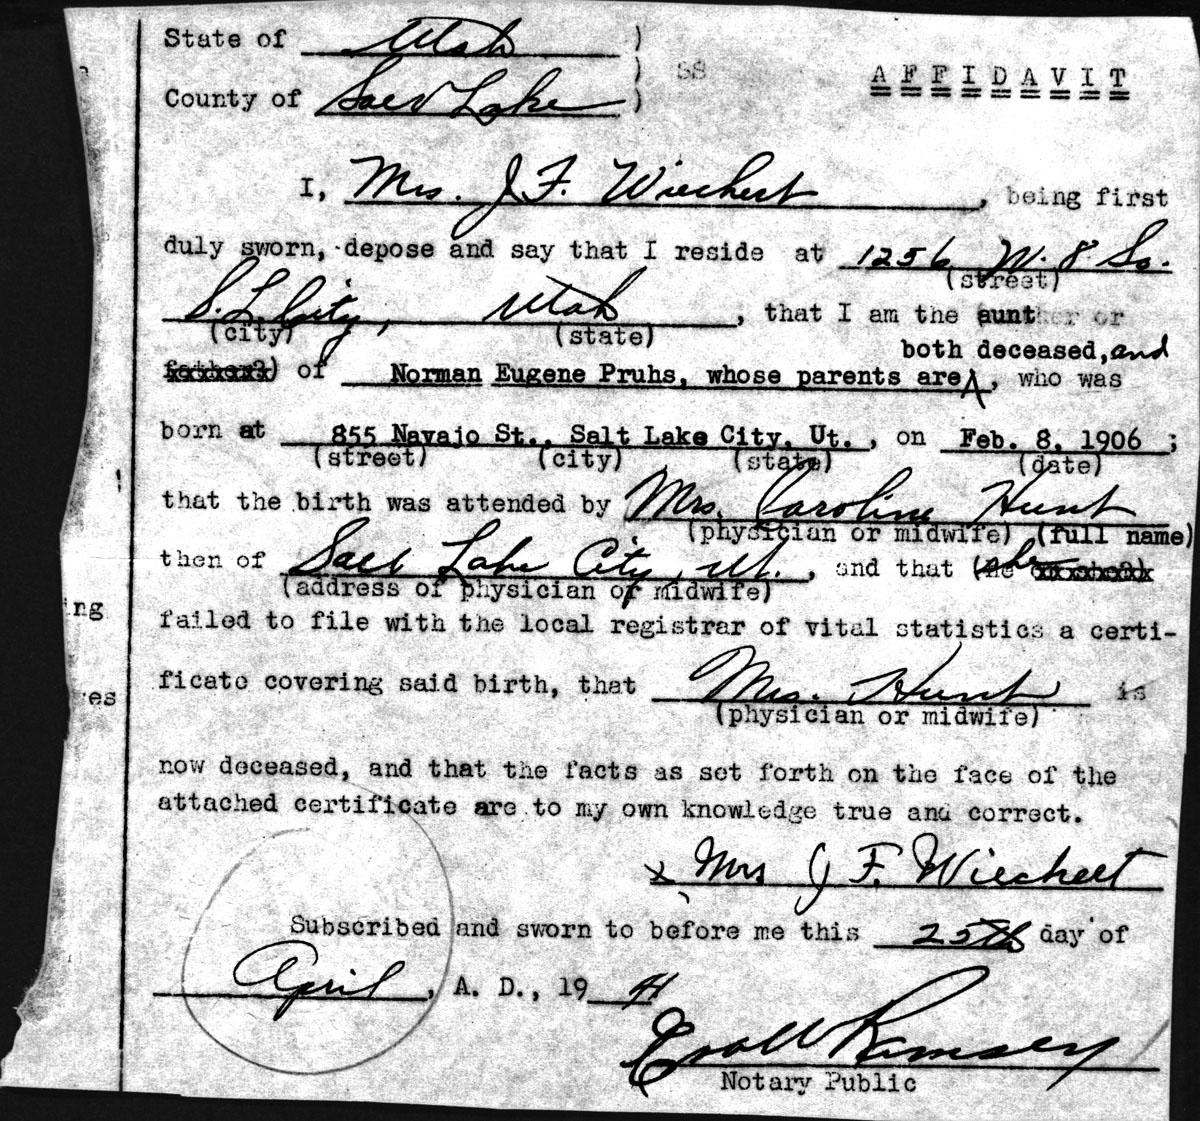 State of Utah )
) SS
AFFIDAVIT
County of Salt Lake )
I, Mrs. J F. Wiechert, being first
duly sworn, depose and say that I reside at 1256 W. 8 So.
(street)
S. L. City, Utah, that I am the aunt
(city) (state)
both deceased, and
of Norman Eugene Pruhs, whose parents are, who was
born at 855 Navajo St., Salt Lake City, Ut., on Feb. 8, 1906;
(street) (city) (state) (date)
that the birth was attended by Mrs. Caroline Hunt
(physician or midwife) (full name)
then of Salt Lake City, Ut., and that she
(address of physician or midwife)
failed to file with the local registrar of vital statistics a certi-
ficate covering said birth, that Mrs. Hunt is
(physician or midwife)
now deceased, and that the facts as set forth on the face of the
attached certificate are to my own knowledge true and correct.
x Mrs J F. Wiechert
Subscribed and sworn to before me this 25th day of
April, A. D., 19 41
Ramsey
Notary Public
ing
es